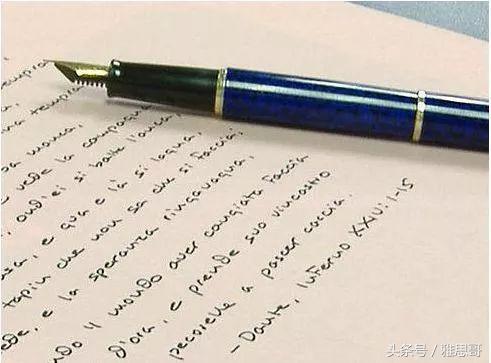 tempra,
manca,
e vede la campagna
; ond'ei si batte l'anca,
sa, e qua e là si lagna,
tapin che non sa che si faccia;
ede, e la speranza ringavagna,
ndo 'l mondo aver cangiata faccia
d'ora, e prende suo vincastro
pecorelle a pascer caccia.
- Dante, Inferno XXIV: 1-15
头条号 / 雅思哥